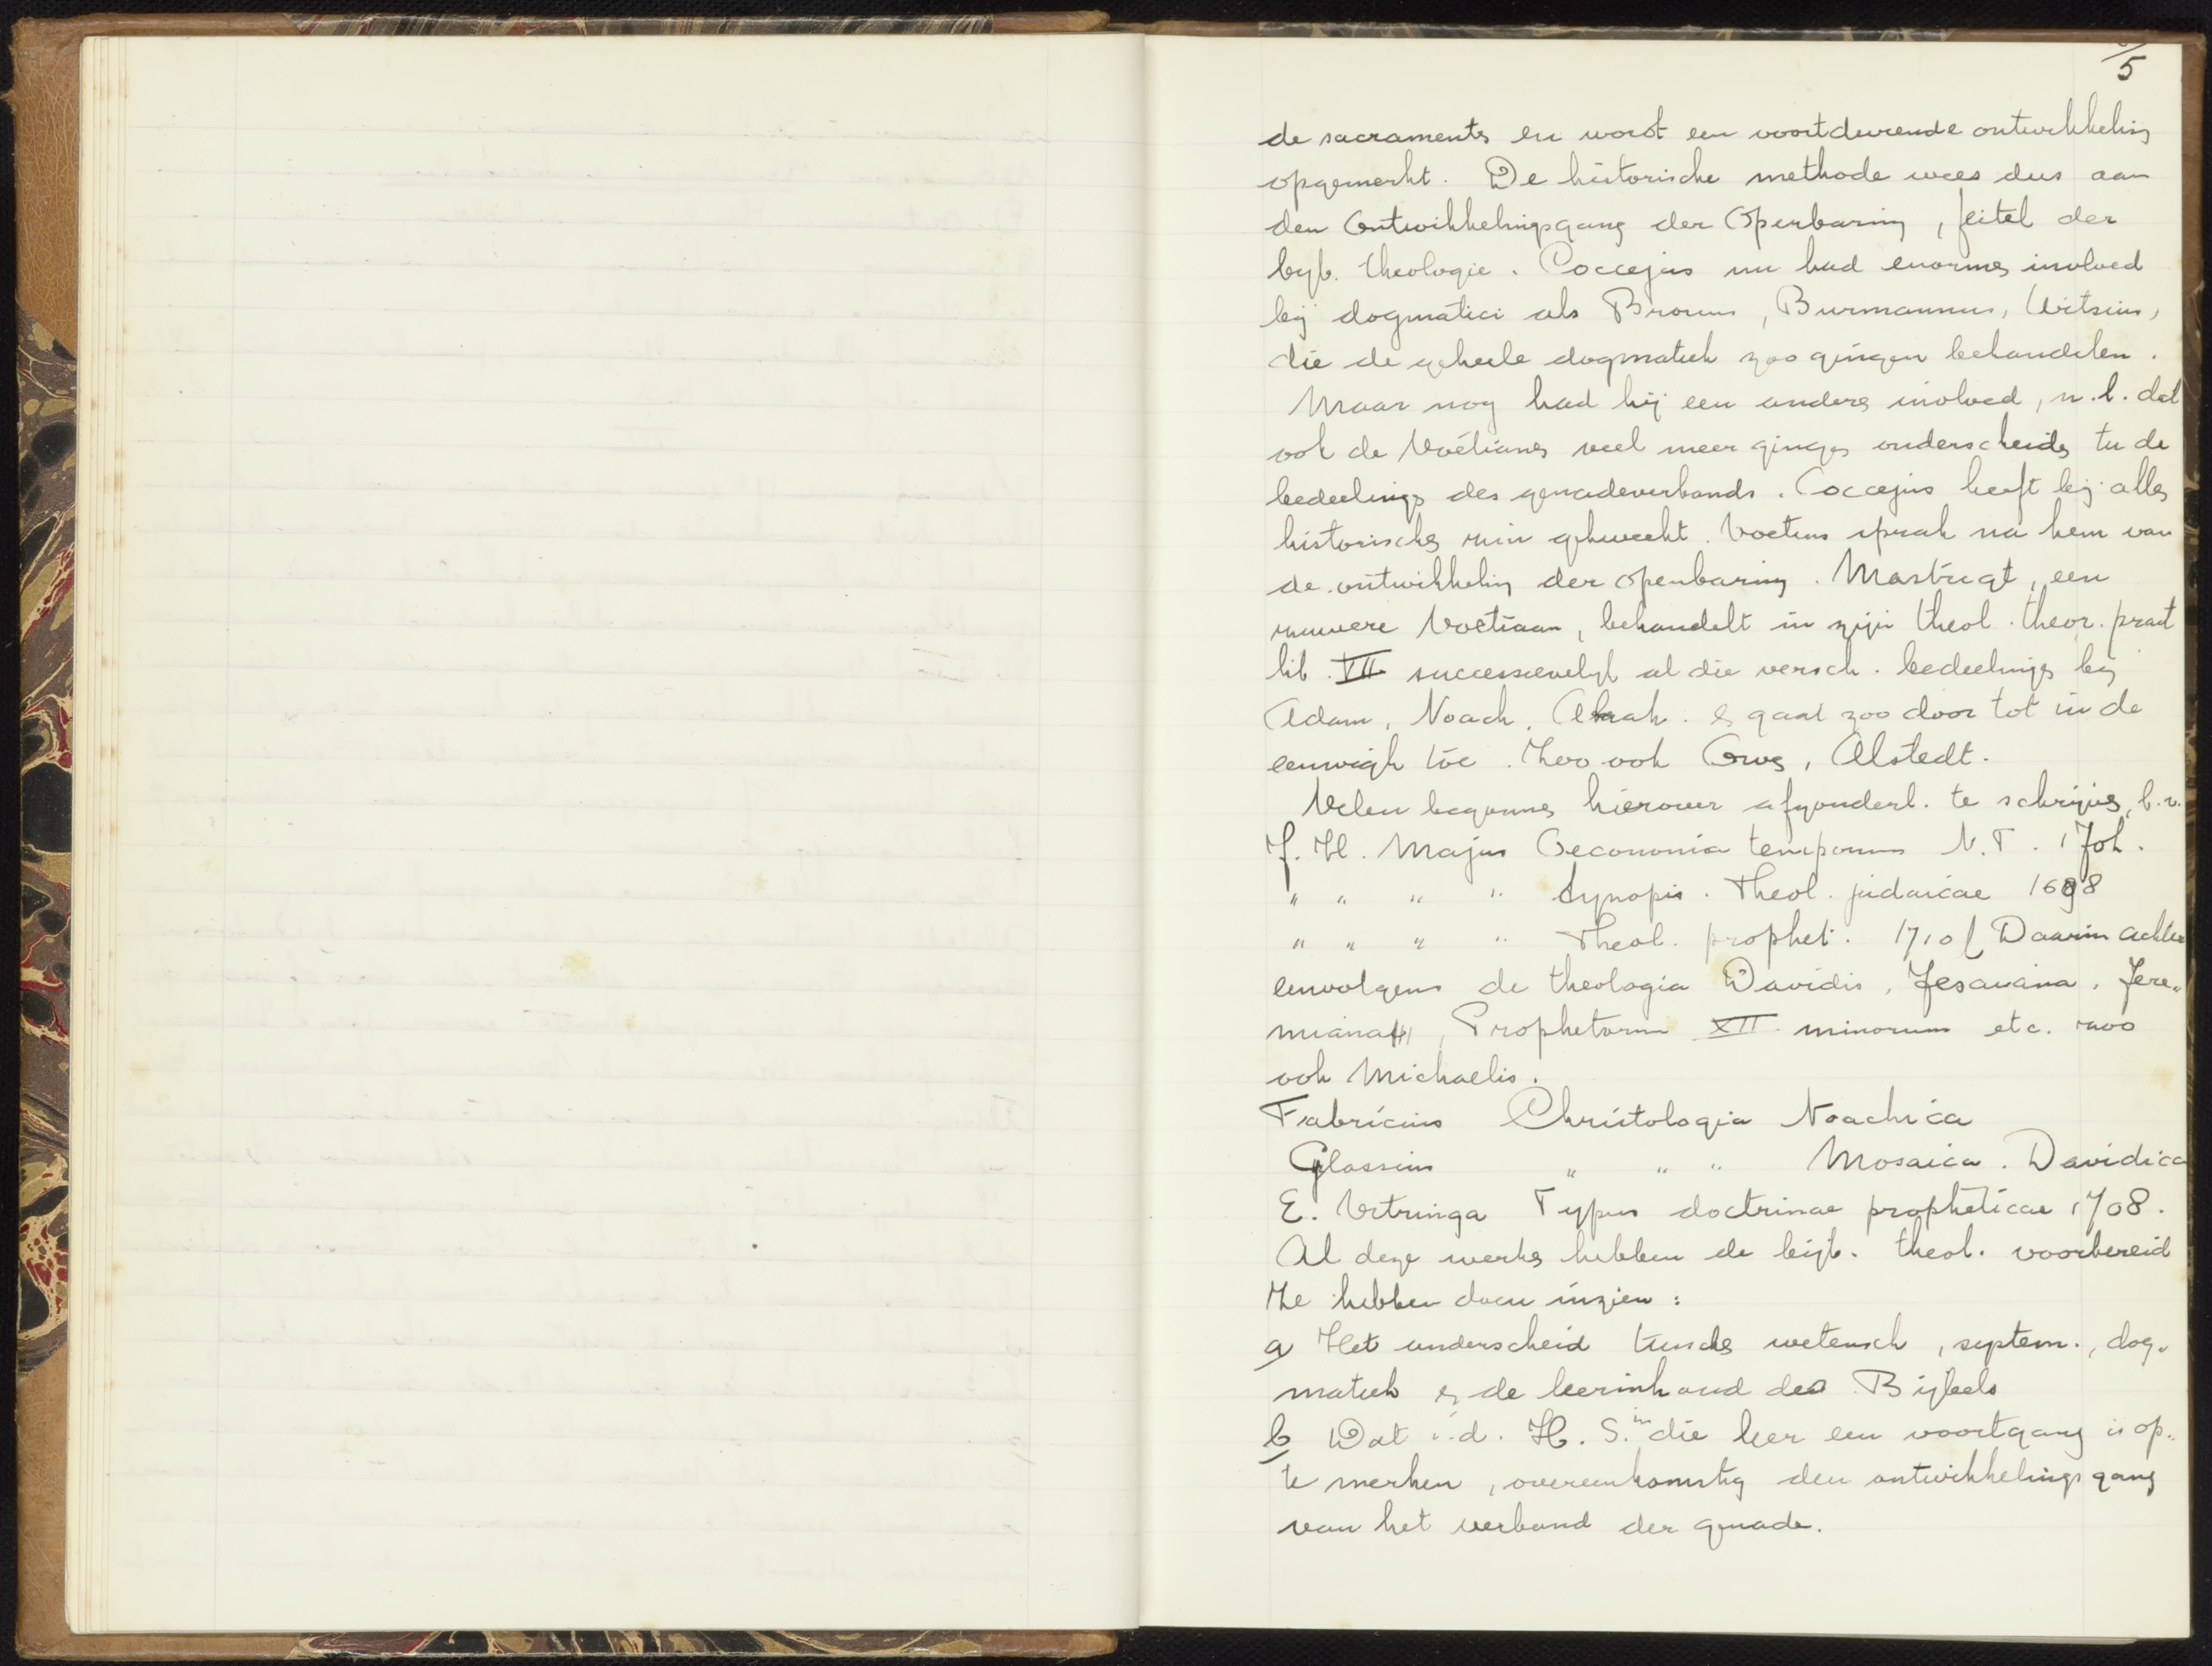 5
de sacraments en wordt een voortdurende ontwikkeling
opgemerkt. De historische methode wees dus aan
den Ontwikkelingsgang der Openbaring, feitel der
byb. theologie. Coccejus nu had enorme invloed
bij dogmatici als Brouns, Burmannus, Witsius,
die de geheele dogmatiek zoo gingen behandelen.
Maar nog had hij een andere invloed, n.l. dat
ook de Voétianen veel meer gingen onderscheiden tu de
bedeelings des genadeverbonds. Coccejus heeft bij allen
historischen zin gekweekt. Voetius sprak na hem van
de ontwikkeling der openbaring. Mastrigt, een
zuivere Voetiaan, behandelt in zijn theol. theor. pract
lib. VII successievelijk al die versch. bedeelings bij
Adam, Noach, Abrah. & gaat zoo door tot in de
eeuwigh toe. Zoo ook Alstedt.
Velen begonnen hierover afzonderl. te schrijven, b.v.
J. H. Majus Oeconomia temporum N.T. 170b.
" " " " Synopsis. Theol. judaicae 1698
" " " " Theol. prophet. 1710 ( Daarin achter
eenvolgens de theologia Davidis, Jesaiana, Jere„
miana , Prophetarum XII minorum etc. zoo
ook Michaelis.
Fabricius Christologia Noachica
Glassius " " " Mosaica. Davidica
E. Vitringa Typus doctrinae propheticae 1708.
Al deze werken hebben de bijb. theol. voorbereid
Ze hebben doen inzien:
a) Het onderscheid tusschen wetensch, system., dog„
matiek & de leerinhoud des Bijbels
b) Dat i.d. H. S. in die leer een voortgang is op„
te merken, overeenkomstig den ontwikkelingsgang
van het verbond der genade.